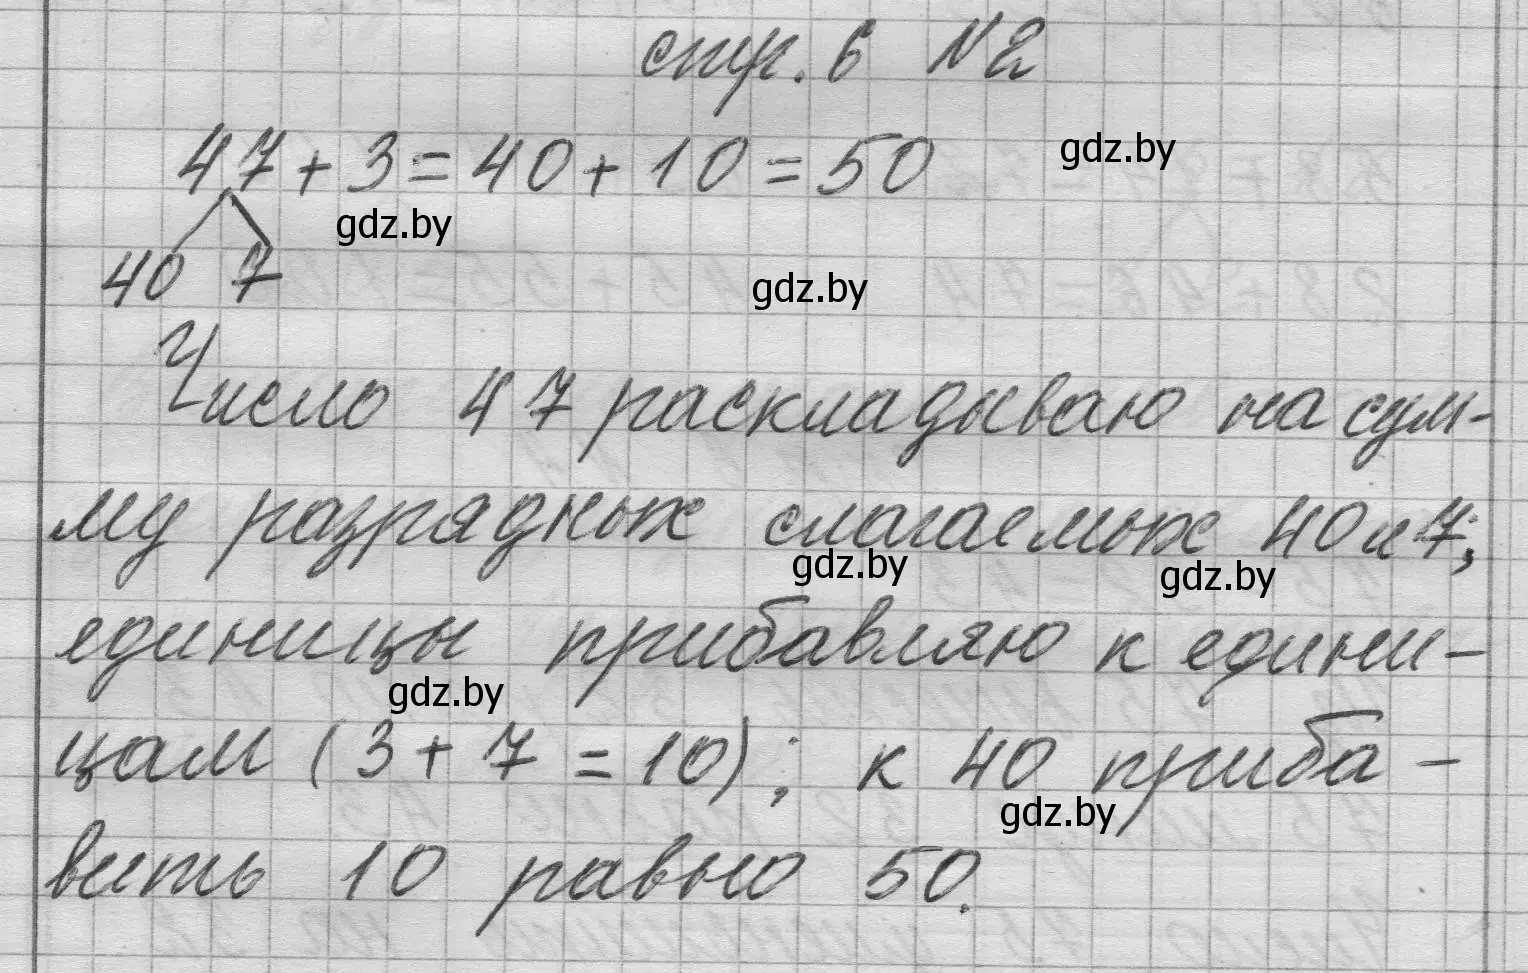 стр. 6 №2
47+3=40+10=50
gdz.by
gdz.by
40 7
gdz.by
Число 47 раскладываю на сум-
му разрядных слагаемых 40 и 7;
gdz.by
gdz.by
единицы прибавляю к едини-
gdz.by
цам (3+7=10); к 40 приба-
gdz.by
вить 10 равно 50.